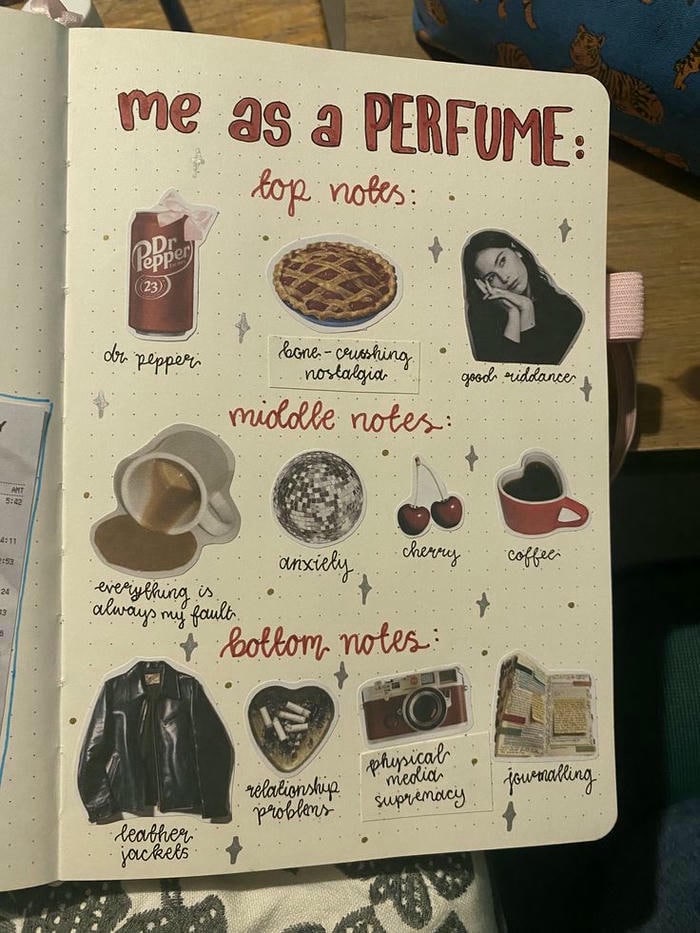 me as a PERFUME:
top notes:
Dr
Pepper
23
dr pepper
bone-crushing
nostalgia
good riddance
middle notes:
everything is
always my fault
anxiety
cherry
coffee
bottom notes:
leather
jackets
relationship
problems
physical
media
supremacy
journalling
Y
AMT
5:42
4:11
2:53
24